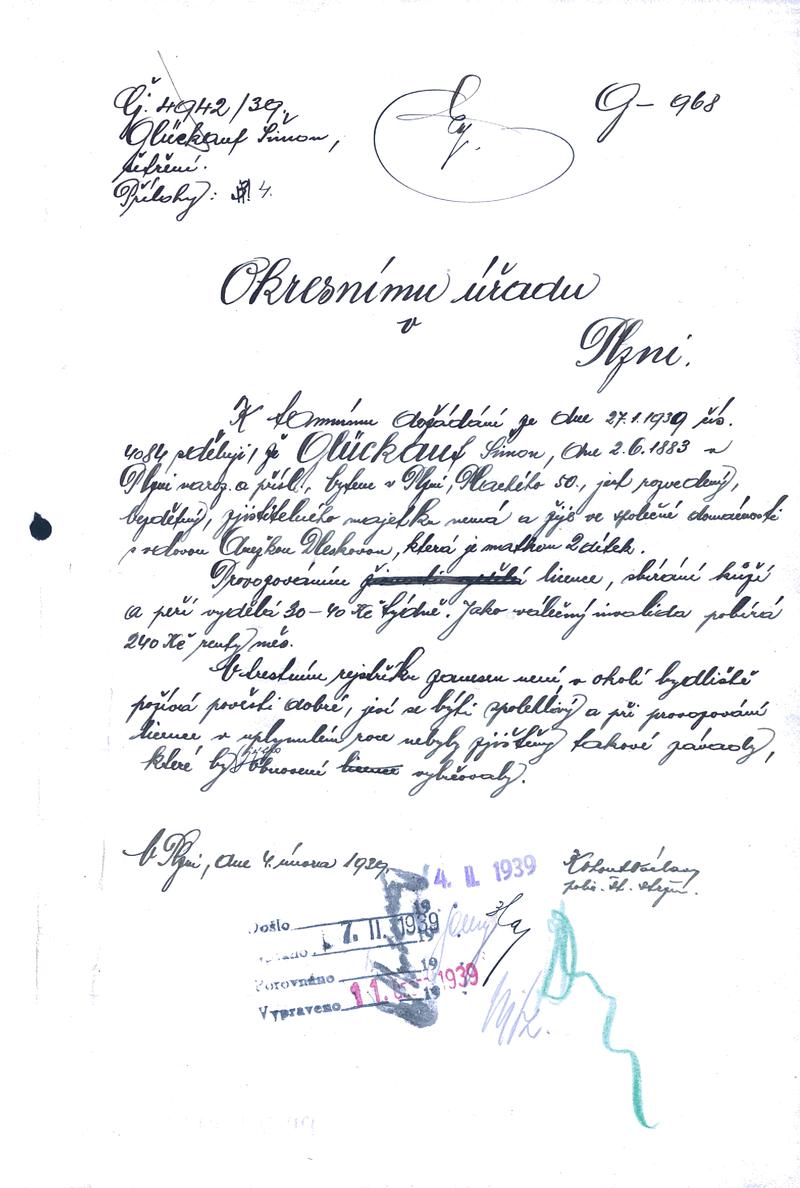 Čj. 4942/39.
G - 968
Glückauf Šimon,
šetření.
Přílohy: 4.
Okresnímu úřadu
v
Plzni.
K tamnímu dožádání ze dne 27.1.1939 čís.
4084 sděluji, že Glückauf Šimon, dne 2.6.1883 v
Plzni naroz. a přísl., bytem v Plzni, Plachého 50., jest rozvedený,
bezdětný, zjistitelného majetku nemá a žije ve společné domácnosti
s vdovou Anežkou Pleskovou, která je matkou 2 dítek.
Provozováním licence, sbírání kůží
a peří vydělá 30-40 Kč týdně. Jako válečný invalida pobírá
240 Kč renty měs.
V trestním rejstříku zanesen není, v okolí bydliště
požívá pověsti dobré, jeví se býti spolehlivý a při provozování
licence v uplynulém roce nebyly zjištěny takové závady,
které by obnovení licence vylučovaly.
V Plzni, dne 4. února 1939.
4. II. 1939
Došlo 7. II. 1939
19
Porovnáno 19
Vypraveno 11. 1939